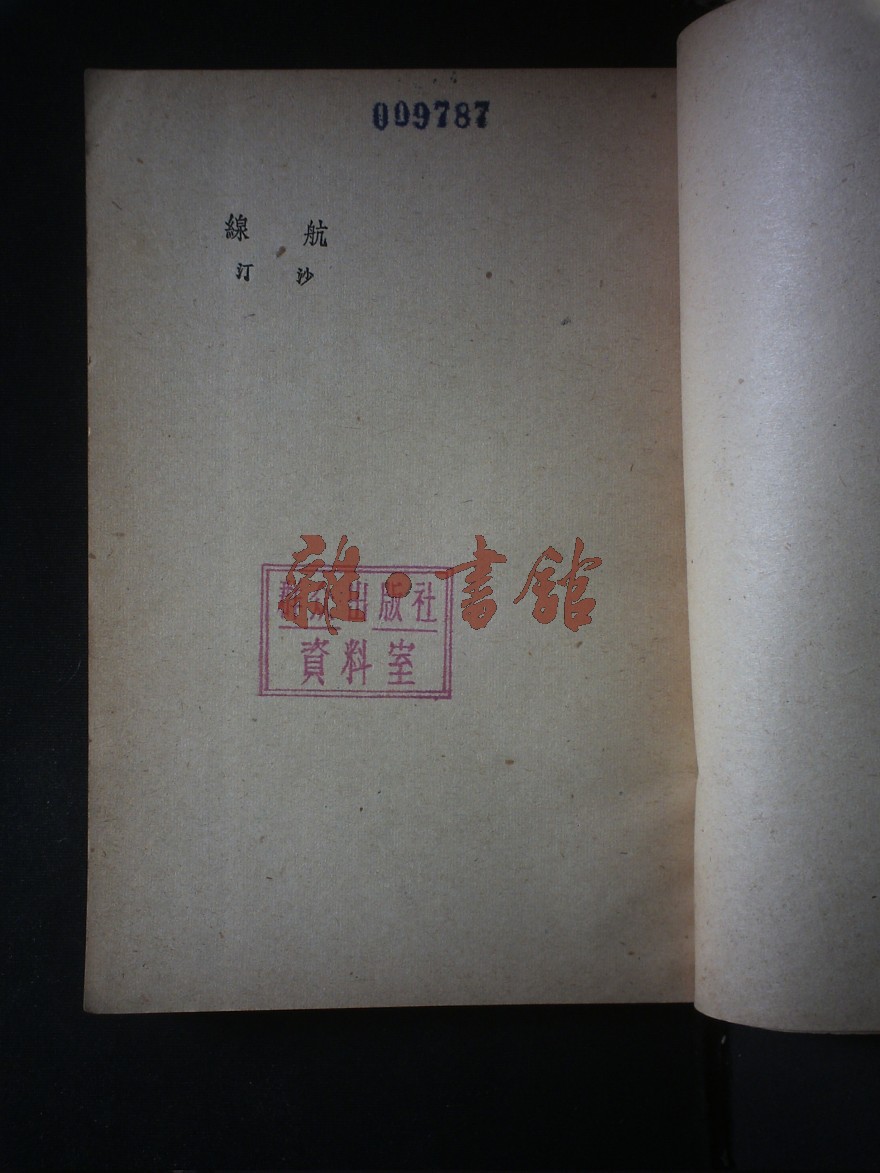 009787
線航
汀沙
雜·書館
群众出版社
資料室